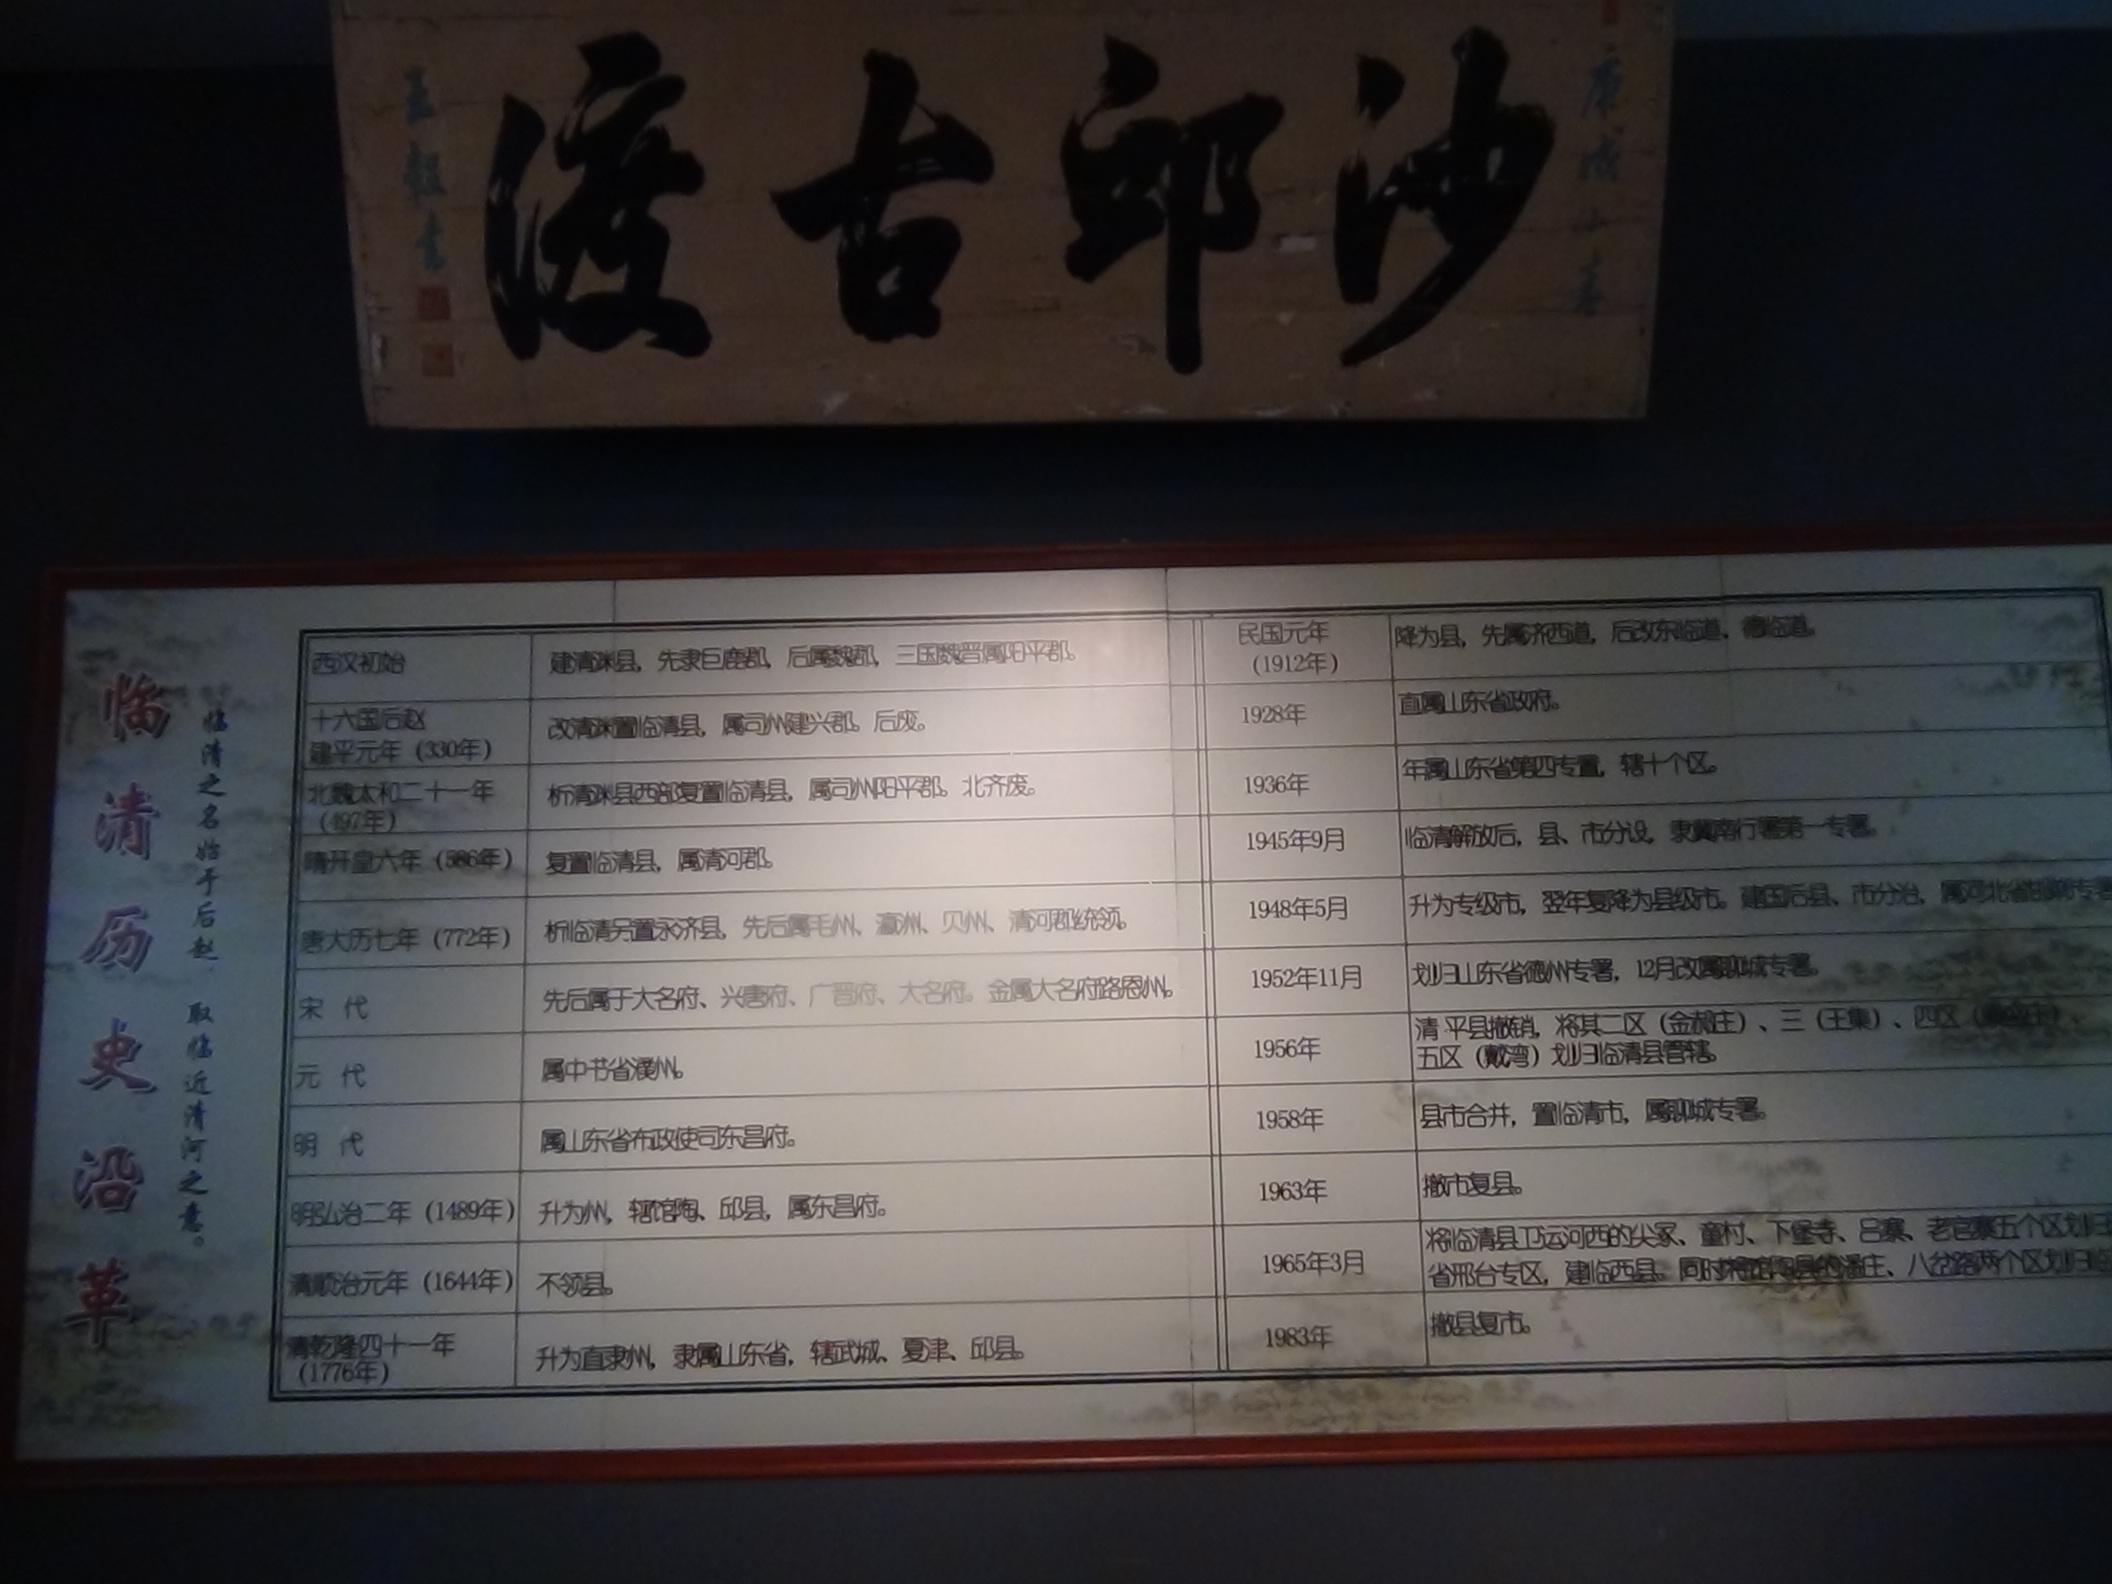 沙邱古渡
庚戌小春
王毅书
临清历史沿革
临清之名始于后赵，取临近清河之意。
西汉初始
建清渊县，先隶巨鹿郡，后属魏郡，三国魏晋属阳平郡。
十六国后赵
建平元年（330年）
改清渊置临清县，属司州建兴郡。后废。
北魏太和二十一年
（497年）
析清渊县西部复置临清县，属司州阳平郡。北齐废。
隋开皇六年（586年）
复置临清县，属清河郡。
唐大历七年（772年）
析临清另置永济县，先后属毛州、瀛州、贝州、清河郡统领。
宋 代
先后属于大名府、兴唐府、广晋府、大名府。金属大名府路恩州。
元 代
属中书省濮州。
明 代
属山东省布政使司东昌府。
明弘治二年（1489年）
升为州，辖馆陶、邱县，属东昌府。
清顺治元年（1644年）
不领县。
清乾隆四十一年
（1776年）
升为直隶州，隶属山东省，辖武城、夏津、邱县。
民国元年
（1912年）
降为县，先属济西道，后改东临道、德临道。
1928年
直属山东省政府。
1936年
年属山东省第四专置，辖十个区。
1945年9月
临清解放后，县、市分设，隶冀南行署第一专署。
1948年5月
升为专级市，翌年复降为县级市。建国后县、市分治，属河北省邯郸专署
1952年11月
划归山东省德州专署，12月改属聊城专署。
1956年
清 平县撤销，将其二区（金郝庄）、三（王集）、四区
五区（戴湾）划归临清县管辖。
1958年
县市合并，置临清市，属聊城专署。
1963年
撤市复县。
1965年3月
将临清县卫运河西的尖冢、童村、下堡寺、吕寨、老官寨五个区划归
省邢台专区，建临西县。同时将馆陶县的潘庄、八岔路两个区划归临
1983年
撤县复市。